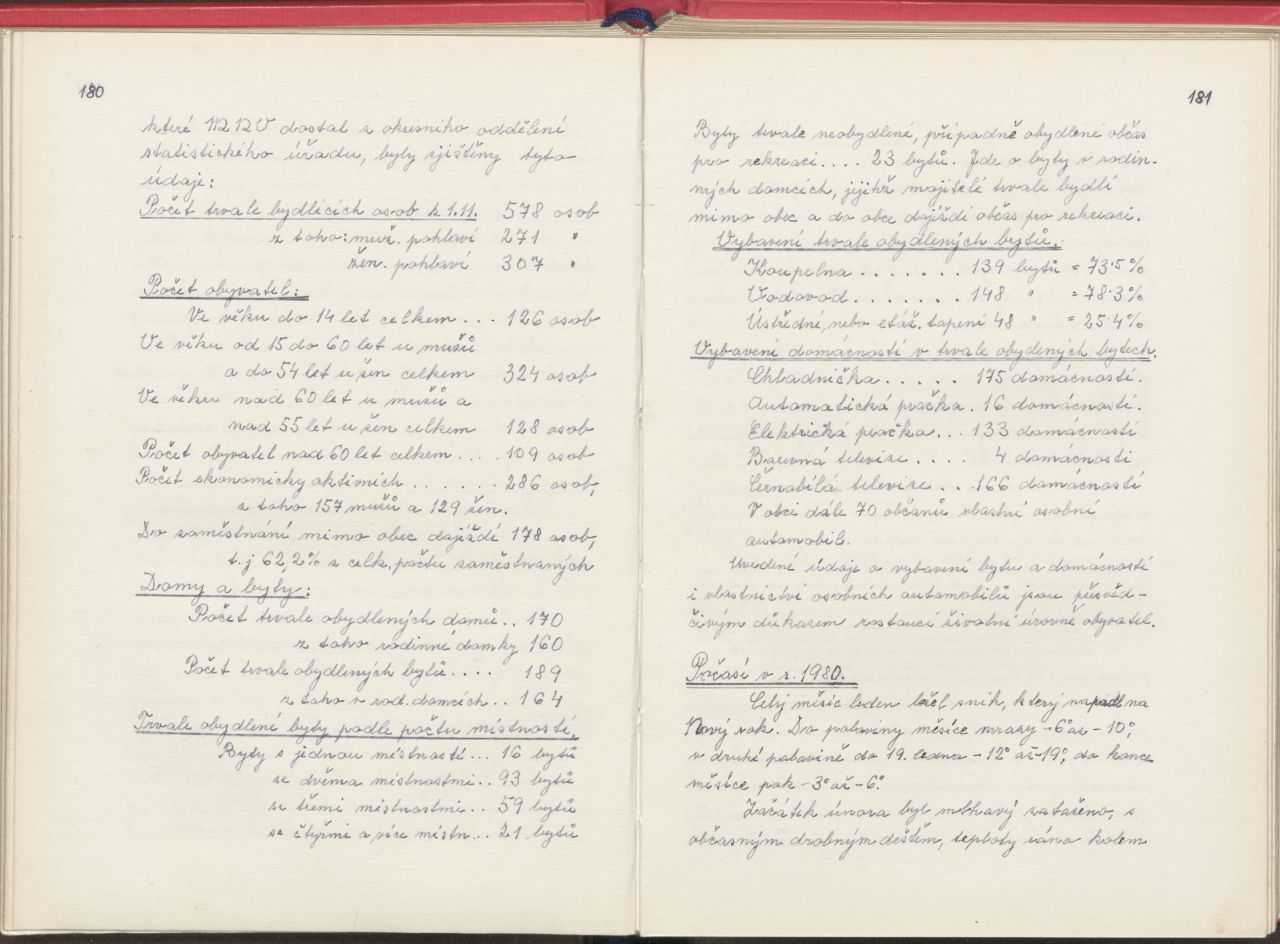 180
které MNV dostal z okresního oddělení
statistického úřadu, byly zjištěny tyto
údaje:
Počet trvale bydlících osob k 1.11. 578 osob
z toho: muž. pohlaví 271 "
žen. pohlaví 307 "
Počet obyvatel:
Ve věku do 14 let celkem ... 126 osob
Ve věku od 15 do 60 let u mužů
a do 54 let u žen celkem 324 osob
Ve věku nad 60 let u mužů a
nad 55 let u žen celkem 128 osob
Počet obyvatel nad 60 let celkem .... 109 osob
Počet ekonomicky aktivních ...... 286 osob,
z toho 157 mužů a 129 žen.
Do zaměstnání mimo obec dojíždí 178 osob,
t.j 62,2% z celk. počtu zaměstnaných
Domy a byty:
Počet trvale obydlených domů.. 170
z toho rodinné domky 160
Počet trvale obydlených bytů.... 189
z toho v rod. domcích.. 164
Trvale obydlené byty podle počtu místností.
Byty s jednou místností... 16 bytů
se dvěma místnostmi.. 93 bytů
se třemi místnostmi.. 59 bytů
se čtyřmi a více místn... 21 bytů
181
Byty trvale neobydlené, případně obydlené občas
pro rekreaci.... 23 bytů. Jde o byty v rodin-
ných domcích, jejihž majitelé trvale bydlí
mimo obec a do obce dojíždí občas pro rekreaci.
Vybavení trvale obydlených bytů.
Koupelna ....... 139 bytů = 73·5%
Vodovod ....... 148 " = 78·3%
Ústřední, nebo etáž. topení 48 " = 25·4%
Vybavení domácností v trvale obydených bytech.
Chladnička ..... 175 domácností.
Automatická pračka . 16 domácností.
Elektrická pračka... 133 domácností
Barevná televize .... 4 domácnosti
Černobílá televize . . 166 domácností
V obci dále 70 občanů vlastní osobní
automobil.
Uvedené údaje o vybavení bytu a domácností
i vlastnictví osobních automobilů jsou přesvěd-
čivým důkazem rostoucí životní úrovně obyvatel.
Počasí v r. 1980.
Celý měsíc leden ležel sníh, který napadl na
Nový rok. Do poloviny měsíce mrazy -6° až -10°,
v druhé polovině do 19. ledna -12° až -19°, do konce
měsíce pak -3° až -6°.
Začátek února byl mlhavý zataženo, s
občasným drobným deštěm, teploty ráno kolem